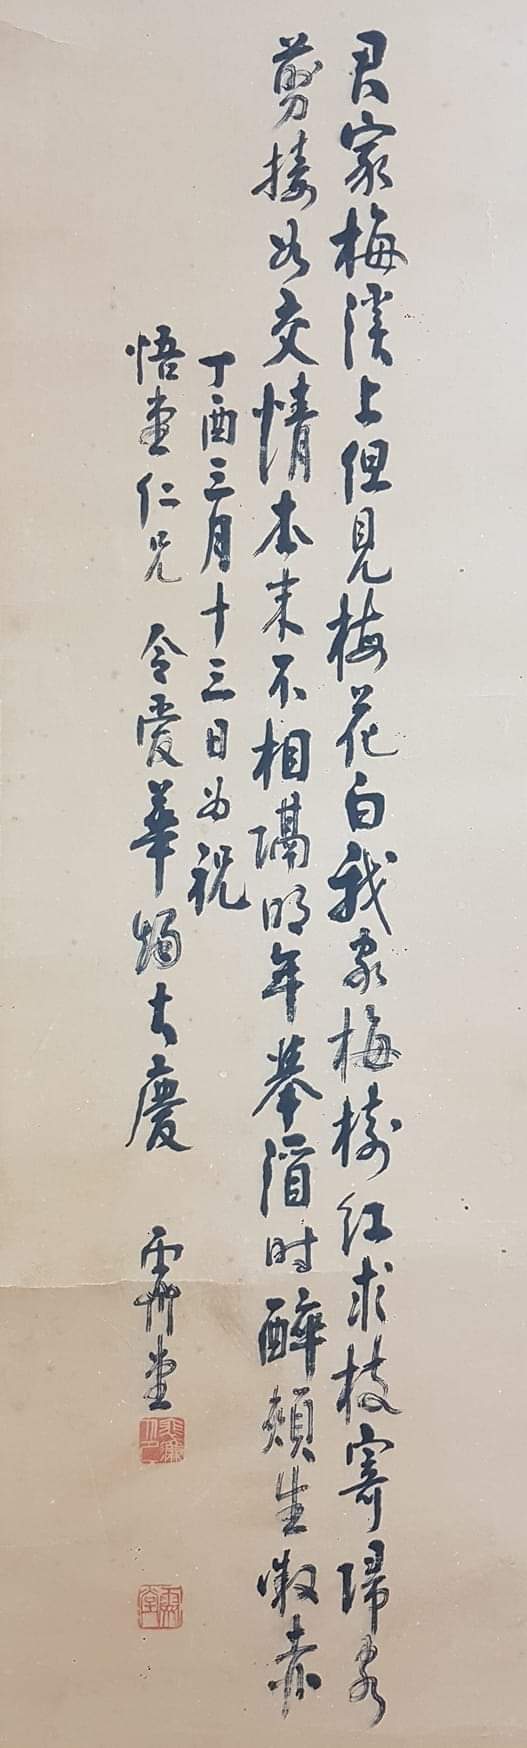 君家梅溪上但見梅花白我家梅樹紅求枝寄歸客
剪接如交情本末不相隔明年舉酒時醉頰生微赤
丁酉三月十三日為祝
悟堂仁兄 令愛華燭大慶 霽堂